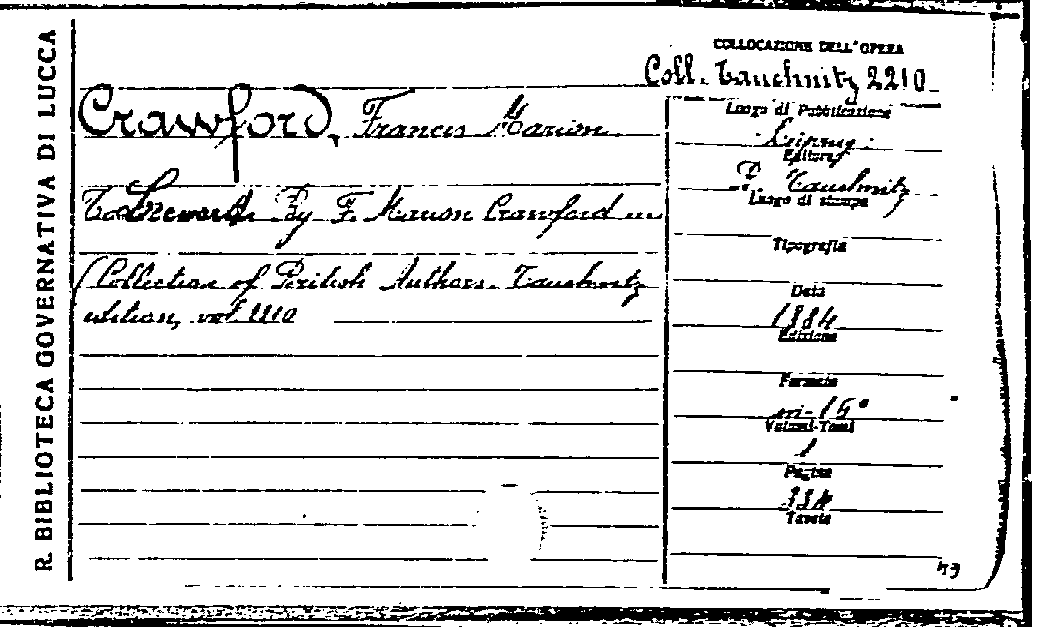 R. BIBLIOTECA GOVERNATIVA DI LUCCA
COLLOCAZIONE DELL'OPERA
Coll. Tauchnitz 2210
Crawford, Francis Marion
To Leeward. By F. Marion Crawford in
(Collection of British Authors. Tauchnitz
edition, vol. 2210
Luogo di Pubblicazione
Leipzig
Editore
B. Tauchnitz
Luogo di stampa
Tipografia
Data
1884
Edizione
Formato
in-16°
Volumi-Tomi
1
Pagine
334
Tavole